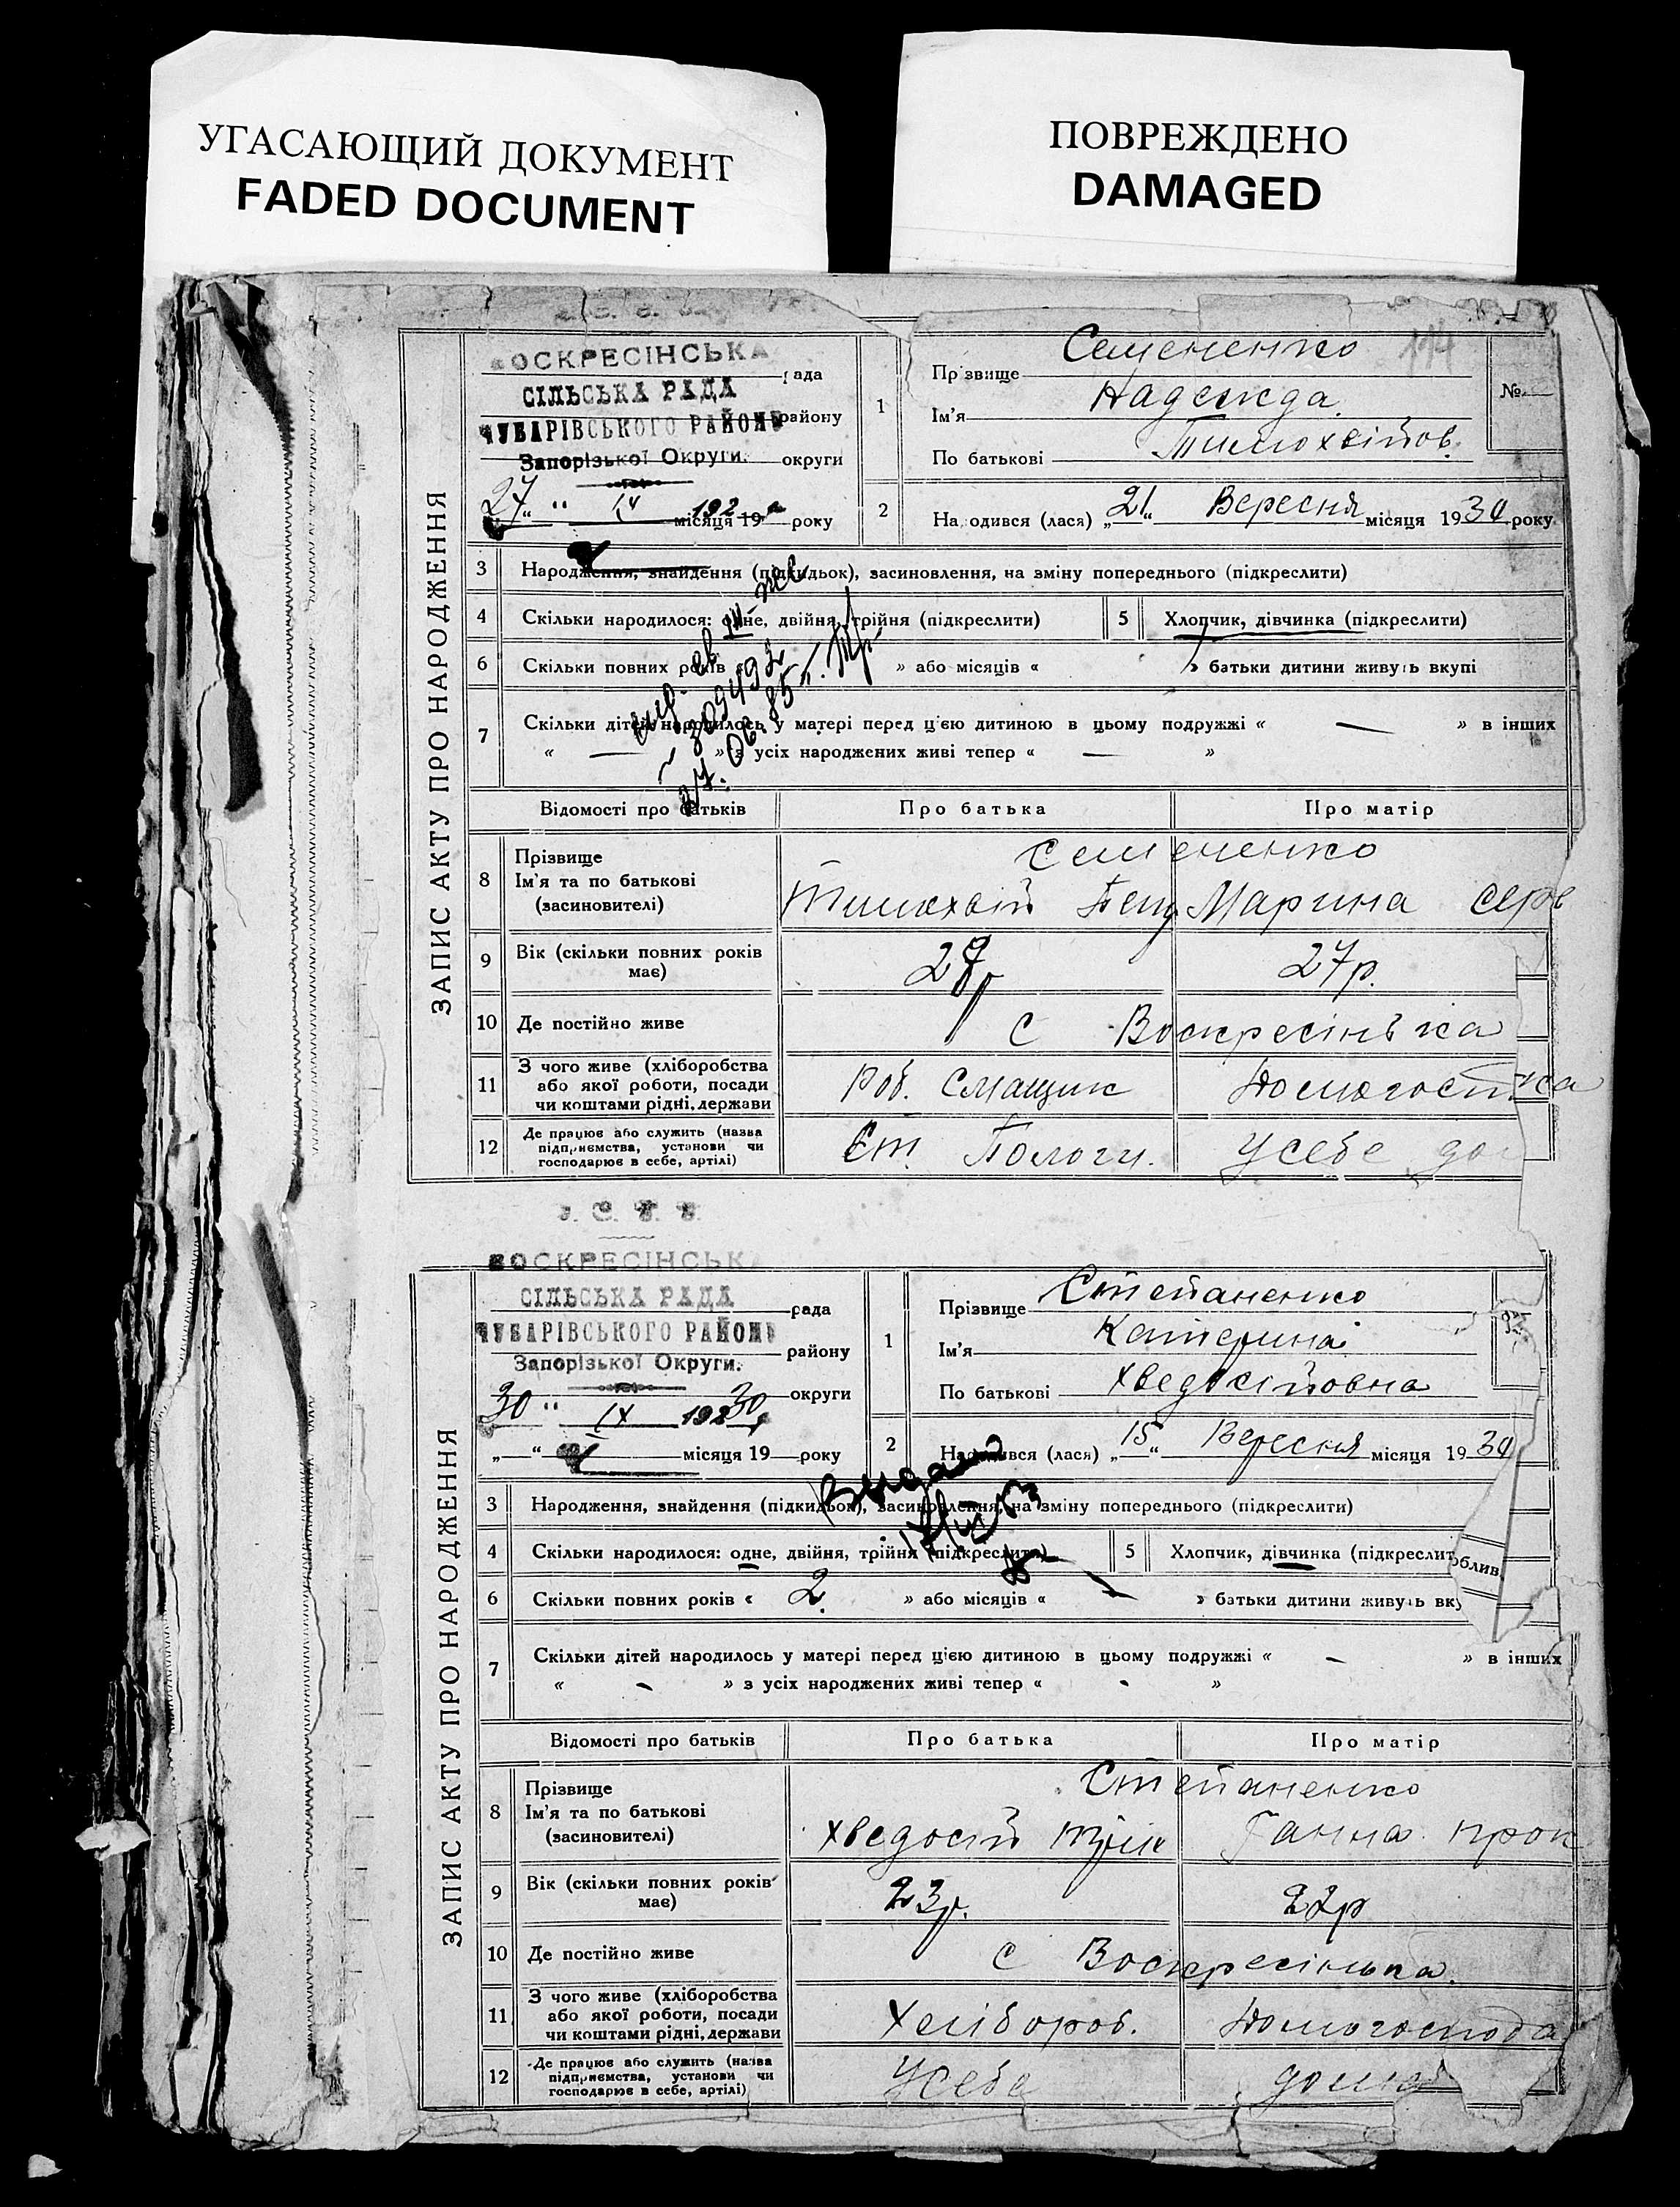 УГАСАЮЩИЙ ДОКУМЕНТ
FADED DOCUMENT
ПОВРЕЖДЕНО
DAMAGED
ЗАПИС АКТУ ПРО НАРОДЖЕННЯ
ВОСКРЕСІНСЬКА
рада
СІЛЬСЬКА РАДА
ЧУБАРІВСЬКОГО РАЙОНУ району
Запорізької Округи. округи
27 " IX місяця 19 року
1
Прізвище Семененко
Ім'я Надежда
По батькові Тимохвіїов.
114
№
2
Народився (лася) „21" Вересня місяця 1930 року
3 Народження, знайдення (підкидьок), засиновлення, на зміну попереднього (підкреслити)
4 Скільки народилося: одне, двійня, трійня (підкреслити)
5 Хлопчик, дівчинка (підкреслити)
6 Скільки повних років « » або місяців « » батьки дитини живуть вкупі
7 Скільки дітей народилось у матері перед цією дитиною в цьому подружжі « — » в інших
« — » з усіх народжених живі тепер « — »
Відомості про батьків Про батька Про матір
8 Прізвище
Ім'я та по батькові
(засиновителі)
Семененко
Тимохвій Марина
9 Вік (скільки повних років має) 27р.
10 Де постійно живе с Воскресінька
11 З чого живе (хліборобства
або якої роботи, посади
чи коштами рідні, держави
Роб. Смащик
12 Де працює або служить (назва
підприємства, установи чи
господарює в себе, артілі)
Ст. Пологи. Усебе
У. С. Р. Р.
ЗАПИС АКТУ ПРО НАРОДЖЕННЯ
ВОСКРЕСІНСЬК
СІЛЬСЬКА РАДА рада
ЧУБАРІВСЬКОГО РАЙОНУ району
Запорізької Округи.
30 " IX 30 округи
„ " місяця 19 року
1
Прізвище Степаненко
Ім'я Катерина
По батькові Хведосійовна
2
Народився (лася) „15" Вересня місяця 1930
3 Народження, знайдення (підкидьок), засиновлення, на зміну попереднього (підкреслити)
4 Скільки народилося: одне, двійня, трійня (підкреслити)
5 Хлопчик, дівчинка (підкреслит
6 Скільки повних років « 2 » або місяців « — » батьки дитини живуть вку
7 Скільки дітей народилось у матері перед цією дитиною в цьому подружжі « - » в інших
« - » з усіх народжених живі тепер « - »
Відомості про батьків Про батька Про матір
8 Прізвище
Ім'я та по батькові
(засиновителі)
Степаненко
Хведосій Ганна Прок
9 Вік (скільки повних років має) 23р. 22р
10 Де постійно живе с Воскресінька.
11 З чого живе (хліборобства
або якої роботи, посади
чи коштами рідні, держави
Хлібороб. Домогоспода
12 Де працює або служить (назва
підприємства, установи чи
господарює в себе, артілі)
Усебе дома